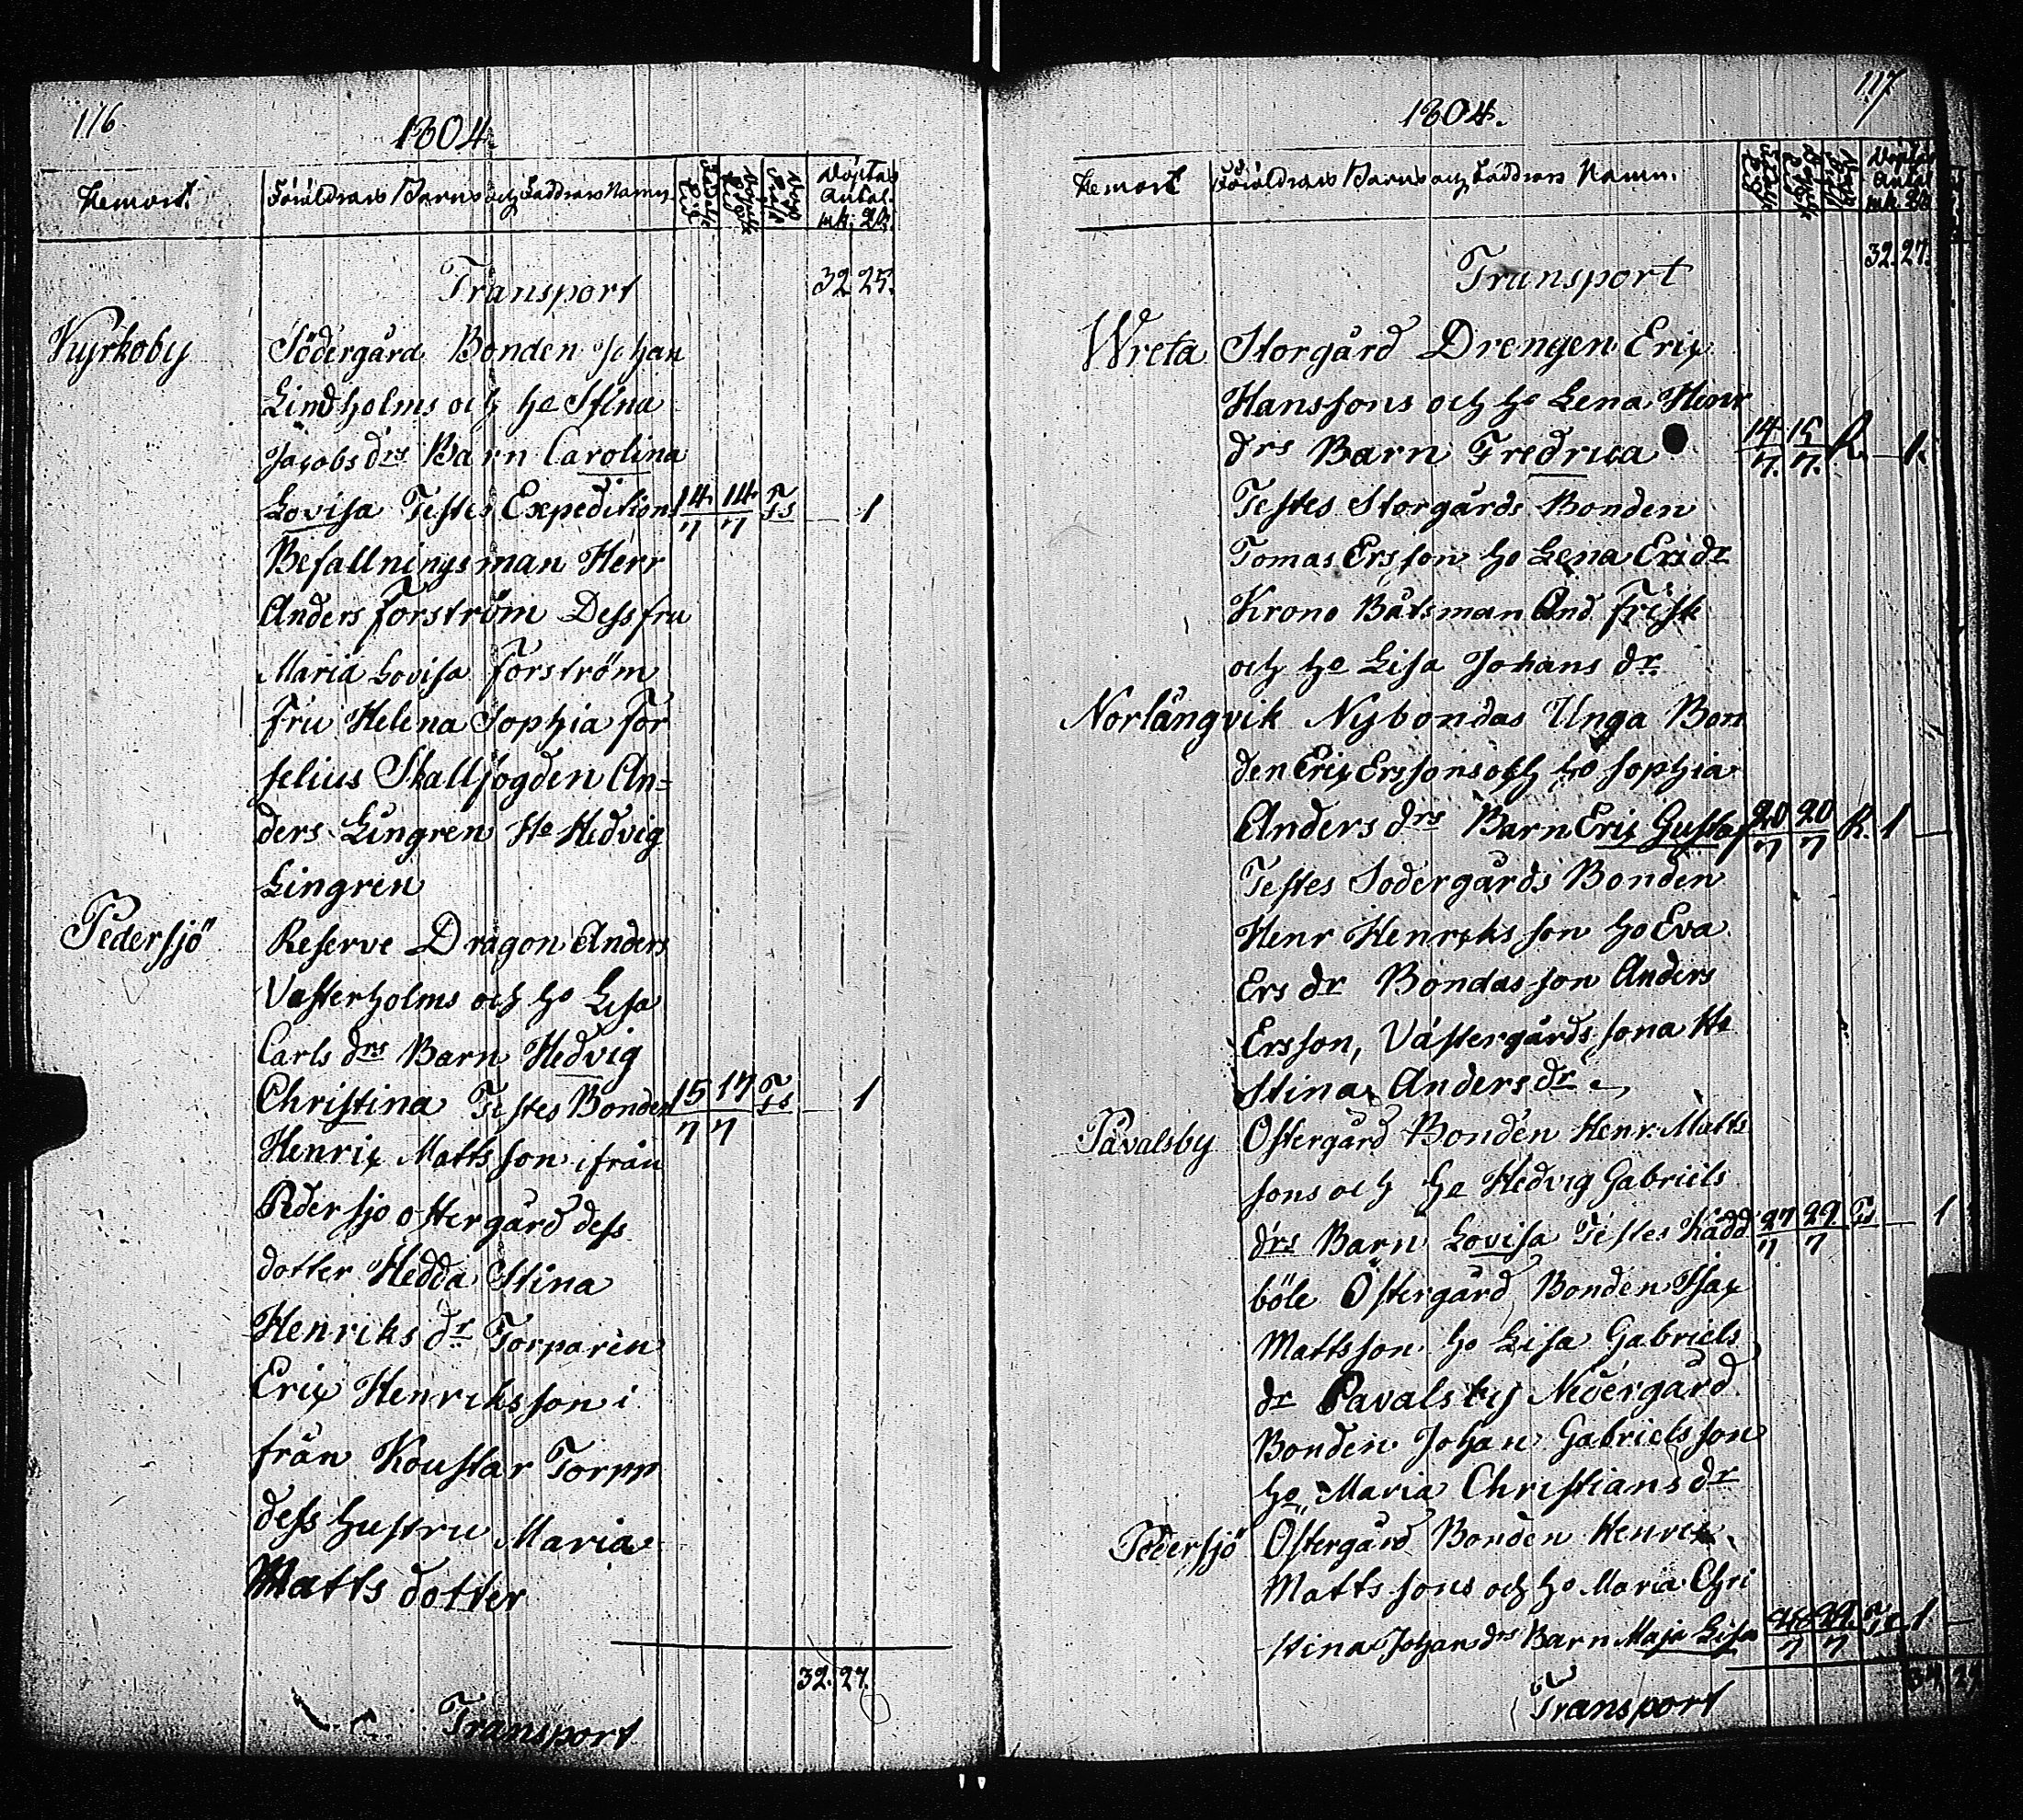 116
1804.
Hemort. Föräldrars Barns och Faddrars Namn Födelse Tid Döpelse Tid Döpta Antal.
mk. Qk.
Transport 32 25.
Kyrkoby Södergård Bonden Johan
Lindholms och ho Stina
Jacobs drs Barn Carolina
Lovisa Testes Expeditions 14/7 14/7 1
Befallningsman Herr
Anders Forström Dess fru
Maria Lovisa Forström
Fru Helena Sophia For
selius Skallfogden An=
ders Lingren Ho Hedvig
Lingren
Pedersjö Reserve Dragon Anders
Vesterholms och ho Lisa
Carls drs Barn Hedvig
Christina Testes Bonden 15/7 17/7 1
Henrix Mattsson ifrån
Pedersjo ostergård dess
dotter Hedda Stina
Henriks dr Torparen
Erix Henriksson i
från Koustar Torpp
dess hustru Maria
Matts dotter
32. 27.
Transport
117
1804.
Hemort Föräldrars Barns och Faddrars Namn. Döpta
Antal
mk. Qk
Transport 32. 27.
Wreta Storgård Drengen Erix
Hanssons och ho Lena Henr
drs Barn Fredrica 14/7. 15/7. R. — 1.
Testes Storgårds Bonden
Tomas Ersson ho Lena Ersdr
Krono Båtsman And Frisk
och ho Lisa Johans dr
Norlångvik Nybondas Unga Bon
den Erix Erssons och ho Sophia
Anders drs Barn Erix Gustaf 20/7 20/7 R. 1 —
Testes Sodergårds Bonden
Henr Henriksson ho Eva
Ers dr Bondasson Anders
Ersson, Västergårds sona Ho
Stina Anders dr
Påvalsby Ostergård Bonden Henr. Matts
sons och ho Hedvig Gabriels
drs Barn Lovisa Testes Kådd 27/7 29/7 — 1
böle Östergård Bonden Isax
Mattsson ho Lisa Gabriels
dr Pavalsby Nedergård
Bonden Johan Gabrielsson
ho Maria Christians dr
Pedersjö Östergård Bonden Henrix
Matts sons och ho Maria Chri
stina Johans drs Barn Maja Lisa 1 —
Transport